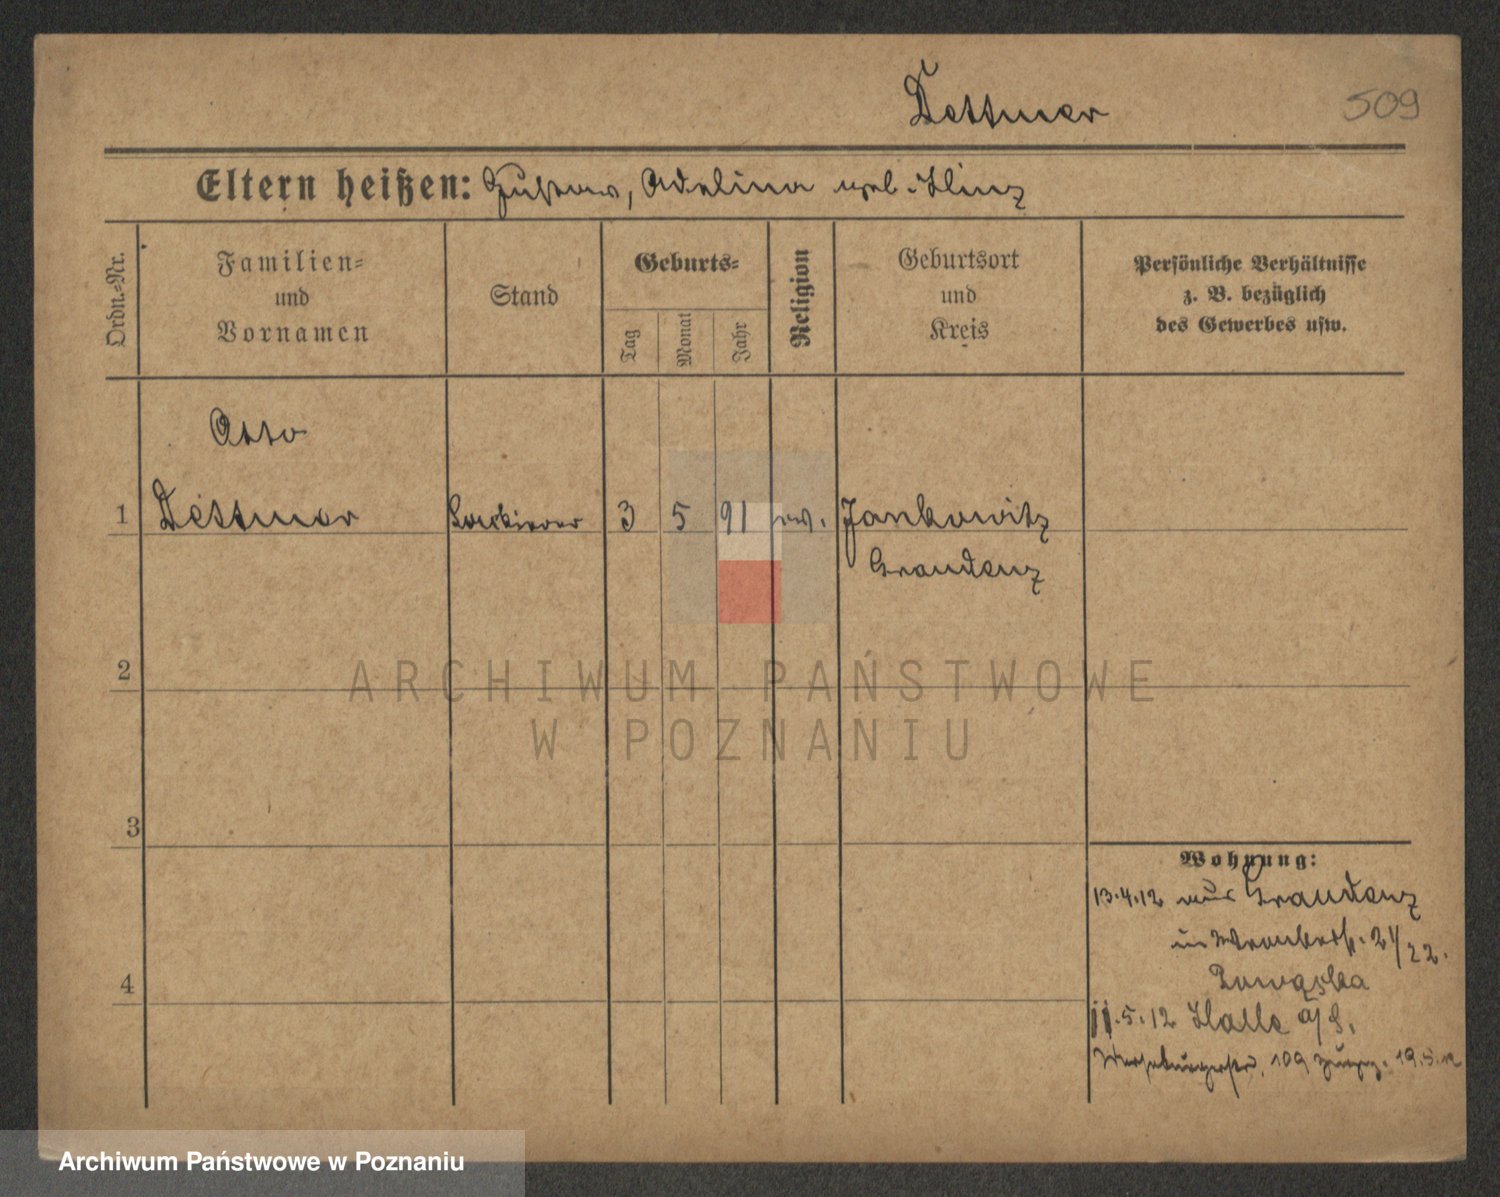 Dettmer
509
Eltern heißen: Gustav, Adelina geb. Hinz
Ordn.-Nr.
Familien-
und
Vornamen
Stand
Geburts-
Tag
Monat
Jahr
Religion
Geburtsort
und
Kreis
Persönliche Verhältnisse
z. B. bezüglich
des Gewerbes usw.
Otto
1 Dettmer Lackierer 3 5 91 ev. Jankowitz
Graudenz
2
3
4
Wohnung:
13.4.12 aus Graudenz
in 21/22.
11.5.12 Halle a/S.
Merseburgerstr. 109 19.5.12
ARCHIWUM PAŃSTWOWE
W POZNANIU
Archiwum Państwowe w Poznaniu